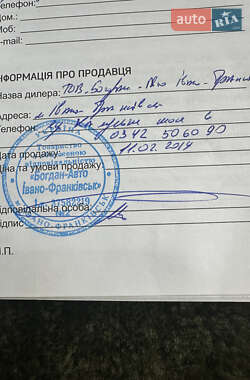 Телефон:
Дом.:
Моб:
e-mail:
AUTO
RIA
ІНФОРМАЦІЯ ПРО ПРОДАВЦЯ
Назва дилера: ТОВ Богдан-Авто Івано-Франківськ
Адреса: м Івано Франківськ
Телефон: 0342 506090
Дата продажу: 11.02.2014
Ціна та умови продажу:
УКРАЇНА
Товариство
з обмеженою
відповідальністю
«Богдан-Авто
Івано-Франківськ»
№2
ІВАНО-ФРАНКІВСЬК
Відповідальна особа:
Підпис
М.П.